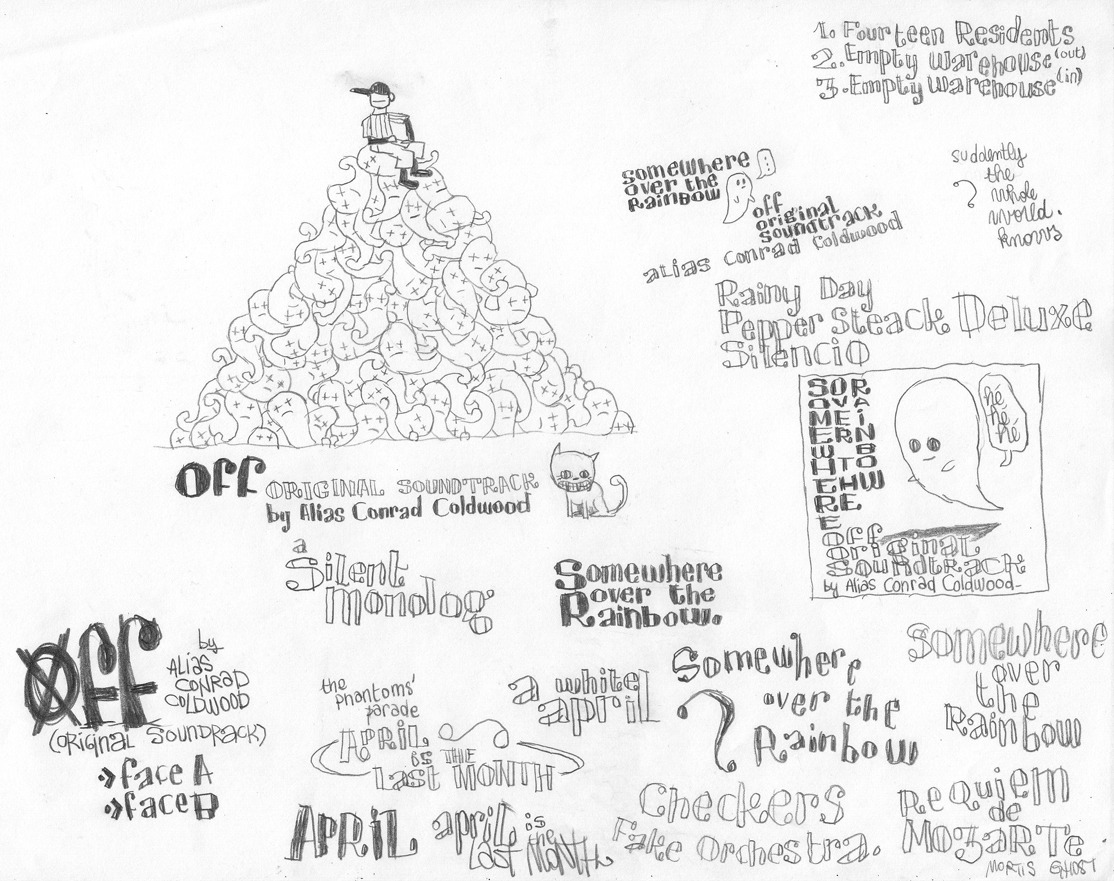 1. Fourteen Residents
2. Empty Warehouse (out)
3. Empty Warehouse (in)
somewhere
over the
Rainbow
off
original
soundtrack
alias Conrad Coldwood
suddently
the
? whole
world.
knows
Rainy Day
Pepper Steack Deluxe
Silencio
SOMEWHERE
OVER THE
RAINBOW
hé
hé
hé
Off
Original
Soundtrack
by Alias Conrad Coldwood
Off ORIGINAL SOUNDTRACK
by Alias Conrad Coldwood
a
Silent
Monolog
Somewhere
over the
Rainbow.
Øff
by
ALiAS
CONRAD
COLDWOOD
(ORiGiNAL SOUNDRACK)
face A
face B
the
phantoms'
parade
APRiL
is THE
Last MONTH
a white
april
Somewhere
? over the
Rainbow
Somewhere
over
the
Rainbow
APRiL
april is
the
last MONTH
Checkers
Fake Orchestra.
ReQuiEM
de
MOZARTe
MORTiS GHOST